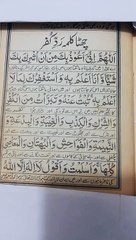 چھٹا کلمہ رَدِّ کُفر
اَللّٰهُمَّ اِنِّیْ اَعُوْذُ بِكَ مِنْ اَنْ اُشْرِكَ بِكَ
شَيْئًا وَّاَنَا اَعْلَمُ بِهٖ وَ اَسْتَغْفِرُكَ لِمَا لَآ
اَعْلَمُ بِهٖ تُبْتُ عَنْهُ وَ تَبَرَّأْتُ مِنَ الْكُفْرِ
وَالشِّرْكِ وَالْكِذْبِ وَالْغِيْبَةِ وَالْبِدْعَةِ
وَالنَّمِيْمَةِ وَالْفَوَاحِشِ وَالْبُهْتَانِ وَالْمَعَاصِیْ
كُلِّهَا وَاَسْلَمْتُ وَاَقُوْلُ لَآ اِلٰهَ اِلَّا اللّٰهُ